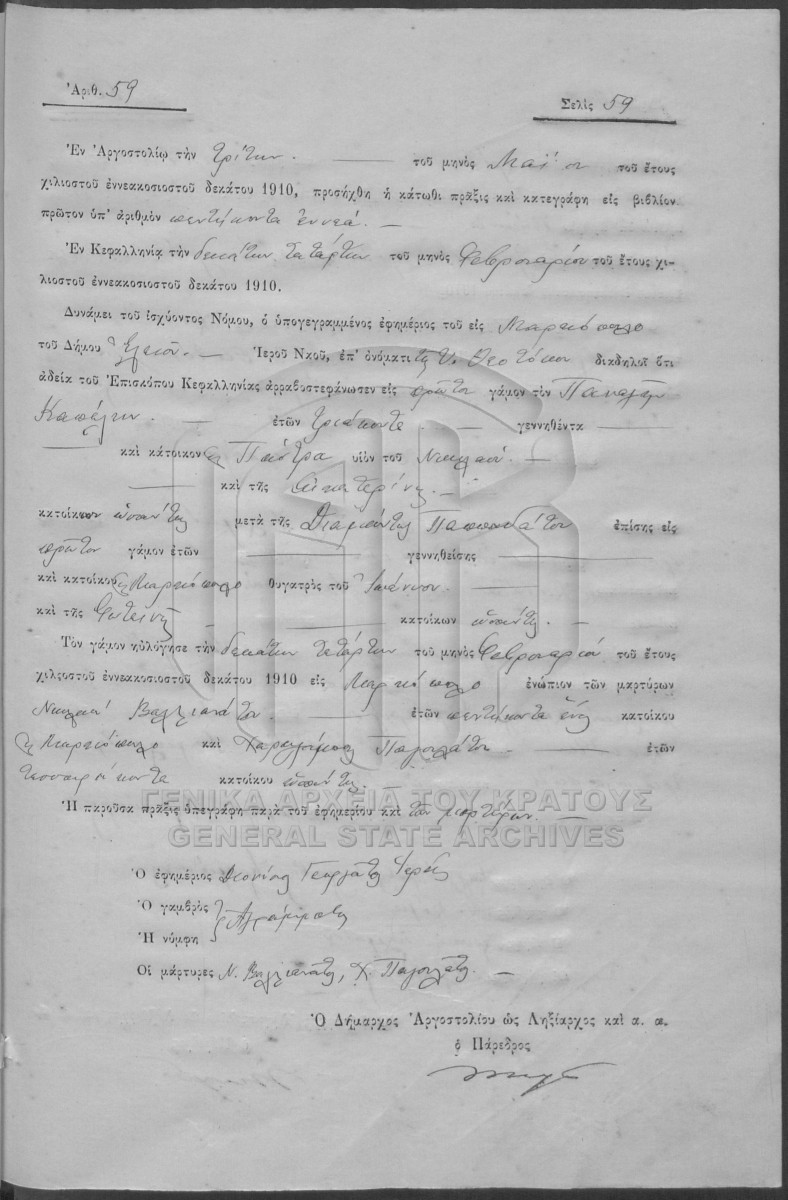 Ἀριθ. 59
Σελὶς 59
Ἐν Ἀργοστολίῳ τὴν τρίτην. τοῦ μηνὸς Μαΐου τοῦ ἔτους
χιλιοστοῦ ἐννεακοσιοστοῦ δεκάτου 1910, προσήχθη ἡ κάτωθι πρᾶξις καὶ κατεγράφη εἰς βιβλίον
πρῶτον ὑπ' ἀριθμὸν πεντήκοντα ἐννέα.
Ἐν Κεφαλληνίᾳ τὴν δεκάτην τετάρτην τοῦ μηνὸς Φεβρουαρίου τοῦ ἔτους χι-
λιοστοῦ ἐννεακοσιοστοῦ δεκάτου 1910.
Δυνάμει τοῦ ἰσχύοντος Νόμου, ὁ ὑπογεγραμμένος ἐφημέριος τοῦ εἰς Μαρκόπουλο
τοῦ Δήμου Ἐλειοῦ. Ἱεροῦ Ναοῦ, ἐπ' ὀνόματι τῆς Ὑ. Θεοτόκου διαδηλοῖ ὅτι
ἀδείᾳ τοῦ Ἐπισκόπου Κεφαλληνίας ἀρραβοστεφάνωσεν εἰς πρῶτον γάμον τὸν Παναγῆν
ἐτῶν τριάκοντα γεννηθέντα
καὶ κάτοικον εἰς Πάστρα υἱὸν τοῦ Νικολάου.
καὶ τῆς Αἰκατερίνης.
κατοίκων ὡσαύτως μετὰ τῆς Διαμάντης ἐπίσης εἰς
πρῶτον γάμον ἐτῶν γεννηθείσης
καὶ κατοίκου εἰς Μαρκόπουλο θυγατρὸς τοῦ Ἰωάννου.
καὶ τῆς Φωτεινῆς κατοίκων ὡσαύτως.
Τὸν γάμον ηὐλόγησε τὴν δεκάτην τετάρτην τοῦ μηνὸς Φεβρουαρίου τοῦ ἔτους
χιλιοστοῦ ἐννεακοσιοστοῦ δεκάτου 1910 εἰς Μαρκόπουλο ἐνώπιον τῶν μαρτύρων
Νικολάου Βαλλιανάτου ἐτῶν πεντήκοντα ἑνός κατοίκου
εἰς Μαρκόπουλο καὶ Χαραλάμπους Παγουλάτου ἐτῶν
τεσσαράκοντα κατοίκου ὡσαύτως.
ΓΕΝΙΚΑ ΑΡΧΕΙΑ ΤΟΥ ΚΡΑΤΟΥΣ
Ἡ παροῦσα πρᾶξις ὑπεγράφη παρὰ τοῦ ἐφημερίου καὶ τῶν μαρτύρων.
GENERAL STATE ARCHIVES
Ὁ ἐφημέριος Διονύσιος Γεωργάτος Ἱερεύς
Ὁ γαμβρὸς
Ἀγράμματοι
Ἡ νύμφη
Οἱ μάρτυρες Ν. Βαλλιανάτος, Χ. Παγουλάτος.
Ὁ Δήμαρχος Ἀργοστολίου ὡς Ληξίαρχος καὶ α. α.
ὁ Πάρεδρος